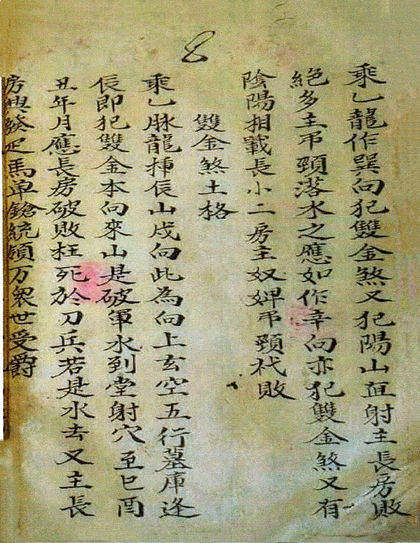 8
乘乙龍作巽向犯雙金煞又犯陽山直射主長房敗
絕多主弔頸落水之應如作辛向亦犯雙金煞又有
陰陽相戰長小二房主奴婢弔頸代敗
雙金煞土格
乘乙脉龍揷辰山戌向此為向上玄空五行墓庫逢
辰即犯雙金本向來山是破軍水到堂射穴至巳酉
丑年月應長房破敗枉死於刀兵若是水去又主長
房興發疋馬单鎗統領万衆世受爵